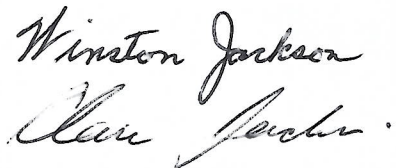 Winston Jackson
Clare Jackson.